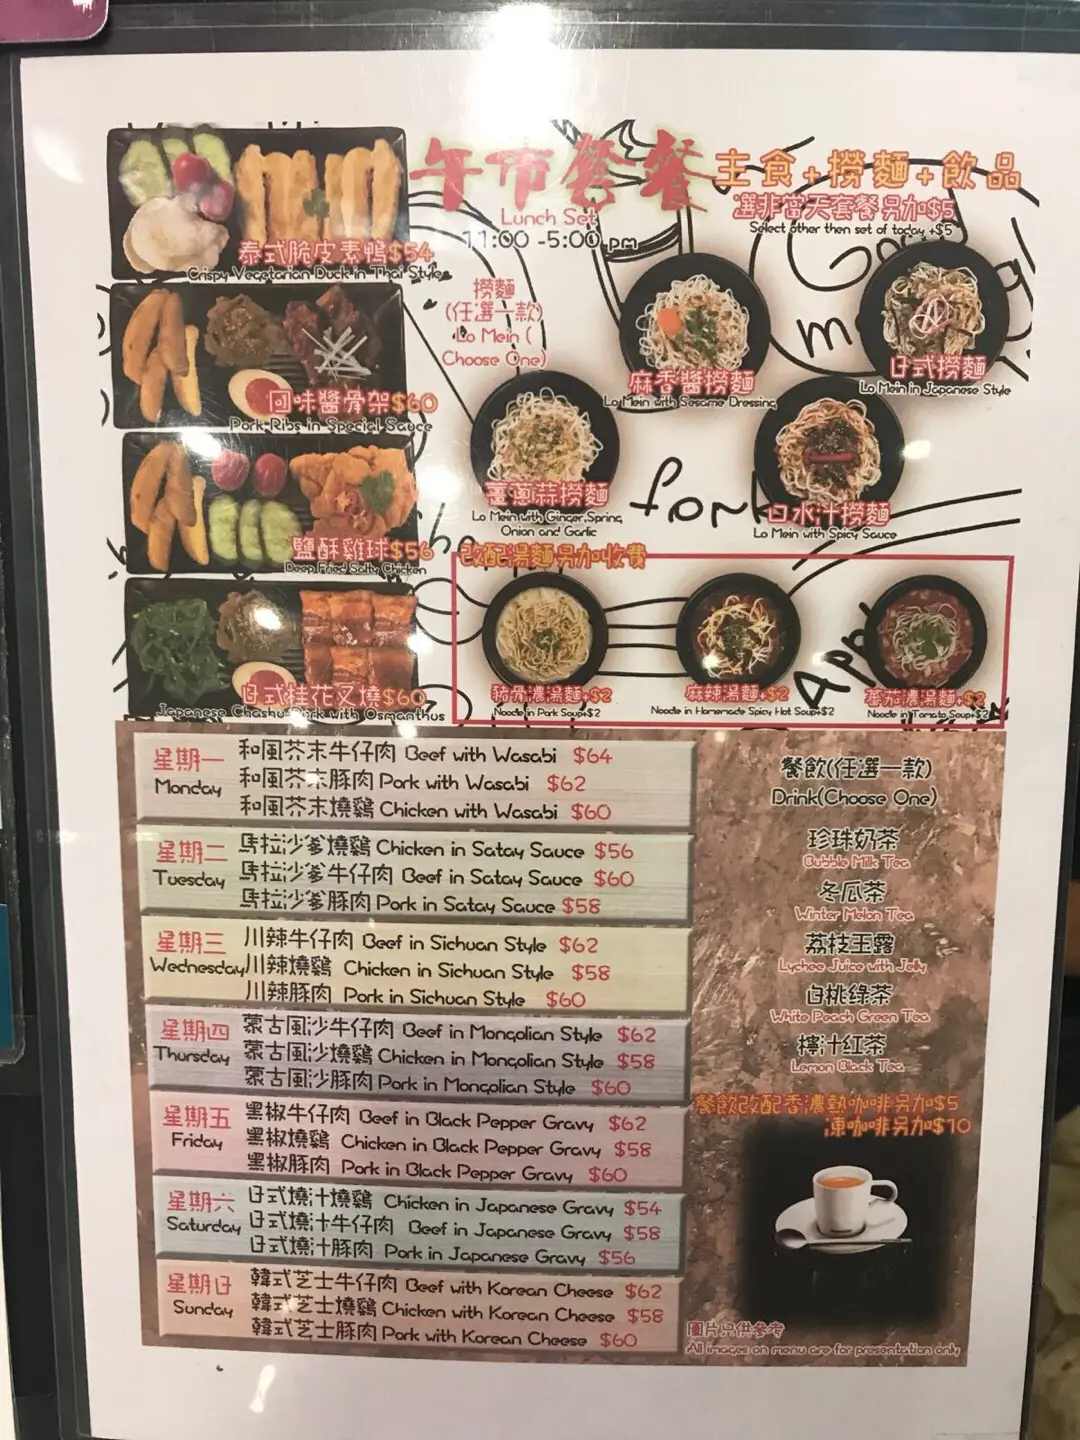 午市套餐
Lunch Set
11:00 -5:00 pm
主食+撈麵+飲品
選非當天套餐另加$5
Select other then set of today +$5
泰式脆皮素鴨$54
Crispy Vegetarian Duck in Thai Style
回味醬骨架$60
Pork Ribs in Special Sauce
鹽酥雞球$56
Deep Fried Salty Chicken
日式桂花叉燒$60
Japanese Chashu Pork with Osmanthus
撈麵
(任選一款)
Lo Mein (
Choose One)
麻香醬撈麵
Lo Mein with Sesame Dressing
日式撈麵
Lo Mein in Japanese Style
薑蔥蒜撈麵
Lo Mein with Ginger,Spring
Onion and Garlic
口水汁撈麵
Lo Mein with Spicy Sauce
fork
改配湯麵另加收費
豬骨濃湯麵+$2
Noodle in Pork Soup+$2
麻辣湯麵+$2
Noodle in Homemade Spicy Hot Soup+$2
蕃茄濃湯麵+$2
Noodle in Tomato Soup+$2
星期一
Monday
和風芥末牛仔肉 Beef with Wasabi $64
和風芥末豚肉 Pork with Wasabi $62
和風芥末燒鷄 Chicken with Wasabi $60
星期二
Tuesday
馬拉沙爹燒鷄 Chicken in Satay Sauce $56
馬拉沙爹牛仔肉 Beef in Satay Sauce $60
馬拉沙爹豚肉 Pork in Satay Sauce $58
星期三
Wednesday
川辣牛仔肉 Beef in Sichuan Style $62
川辣燒鷄 Chicken in Sichuan Style $58
川辣豚肉 Pork in Sichuan Style $60
星期四
Thursday
蒙古風沙牛仔肉 Beef in Mongolian Style $62
蒙古風沙燒鷄 Chicken in Mongolian Style $58
蒙古風沙豚肉 Pork in Mongolian Style $60
星期五
Friday
黑椒牛仔肉 Beef in Black Pepper Gravy $62
黑椒燒鷄 Chicken in Black Pepper Gravy $58
黑椒豚肉 Pork in Black Pepper Gravy $60
星期六
Saturday
日式燒汁燒鷄 Chicken in Japanese Gravy $54
日式燒汁牛仔肉 Beef in Japanese Gravy $58
日式燒汁豚肉 Pork in Japanese Gravy $56
星期日
Sunday
韓式芝士牛仔肉 Beef with Korean Cheese $62
韓式芝士燒鷄 Chicken with Korean Cheese $58
韓式芝士豚肉 Pork with Korean Cheese $60
餐飲(任選一款)
Drink(Choose One)
珍珠奶茶
Bubble Milk Tea
冬瓜茶
Winter Melon Tea
荔枝玉露
Lychee Juice with Jelly
白桃綠茶
White Peach Green Tea
檸汁紅茶
Lemon Black Tea
餐飲改配香濃熱咖啡另加$5
凍咖啡另加$10
圖片只供參考
All images on menu are for presentation only